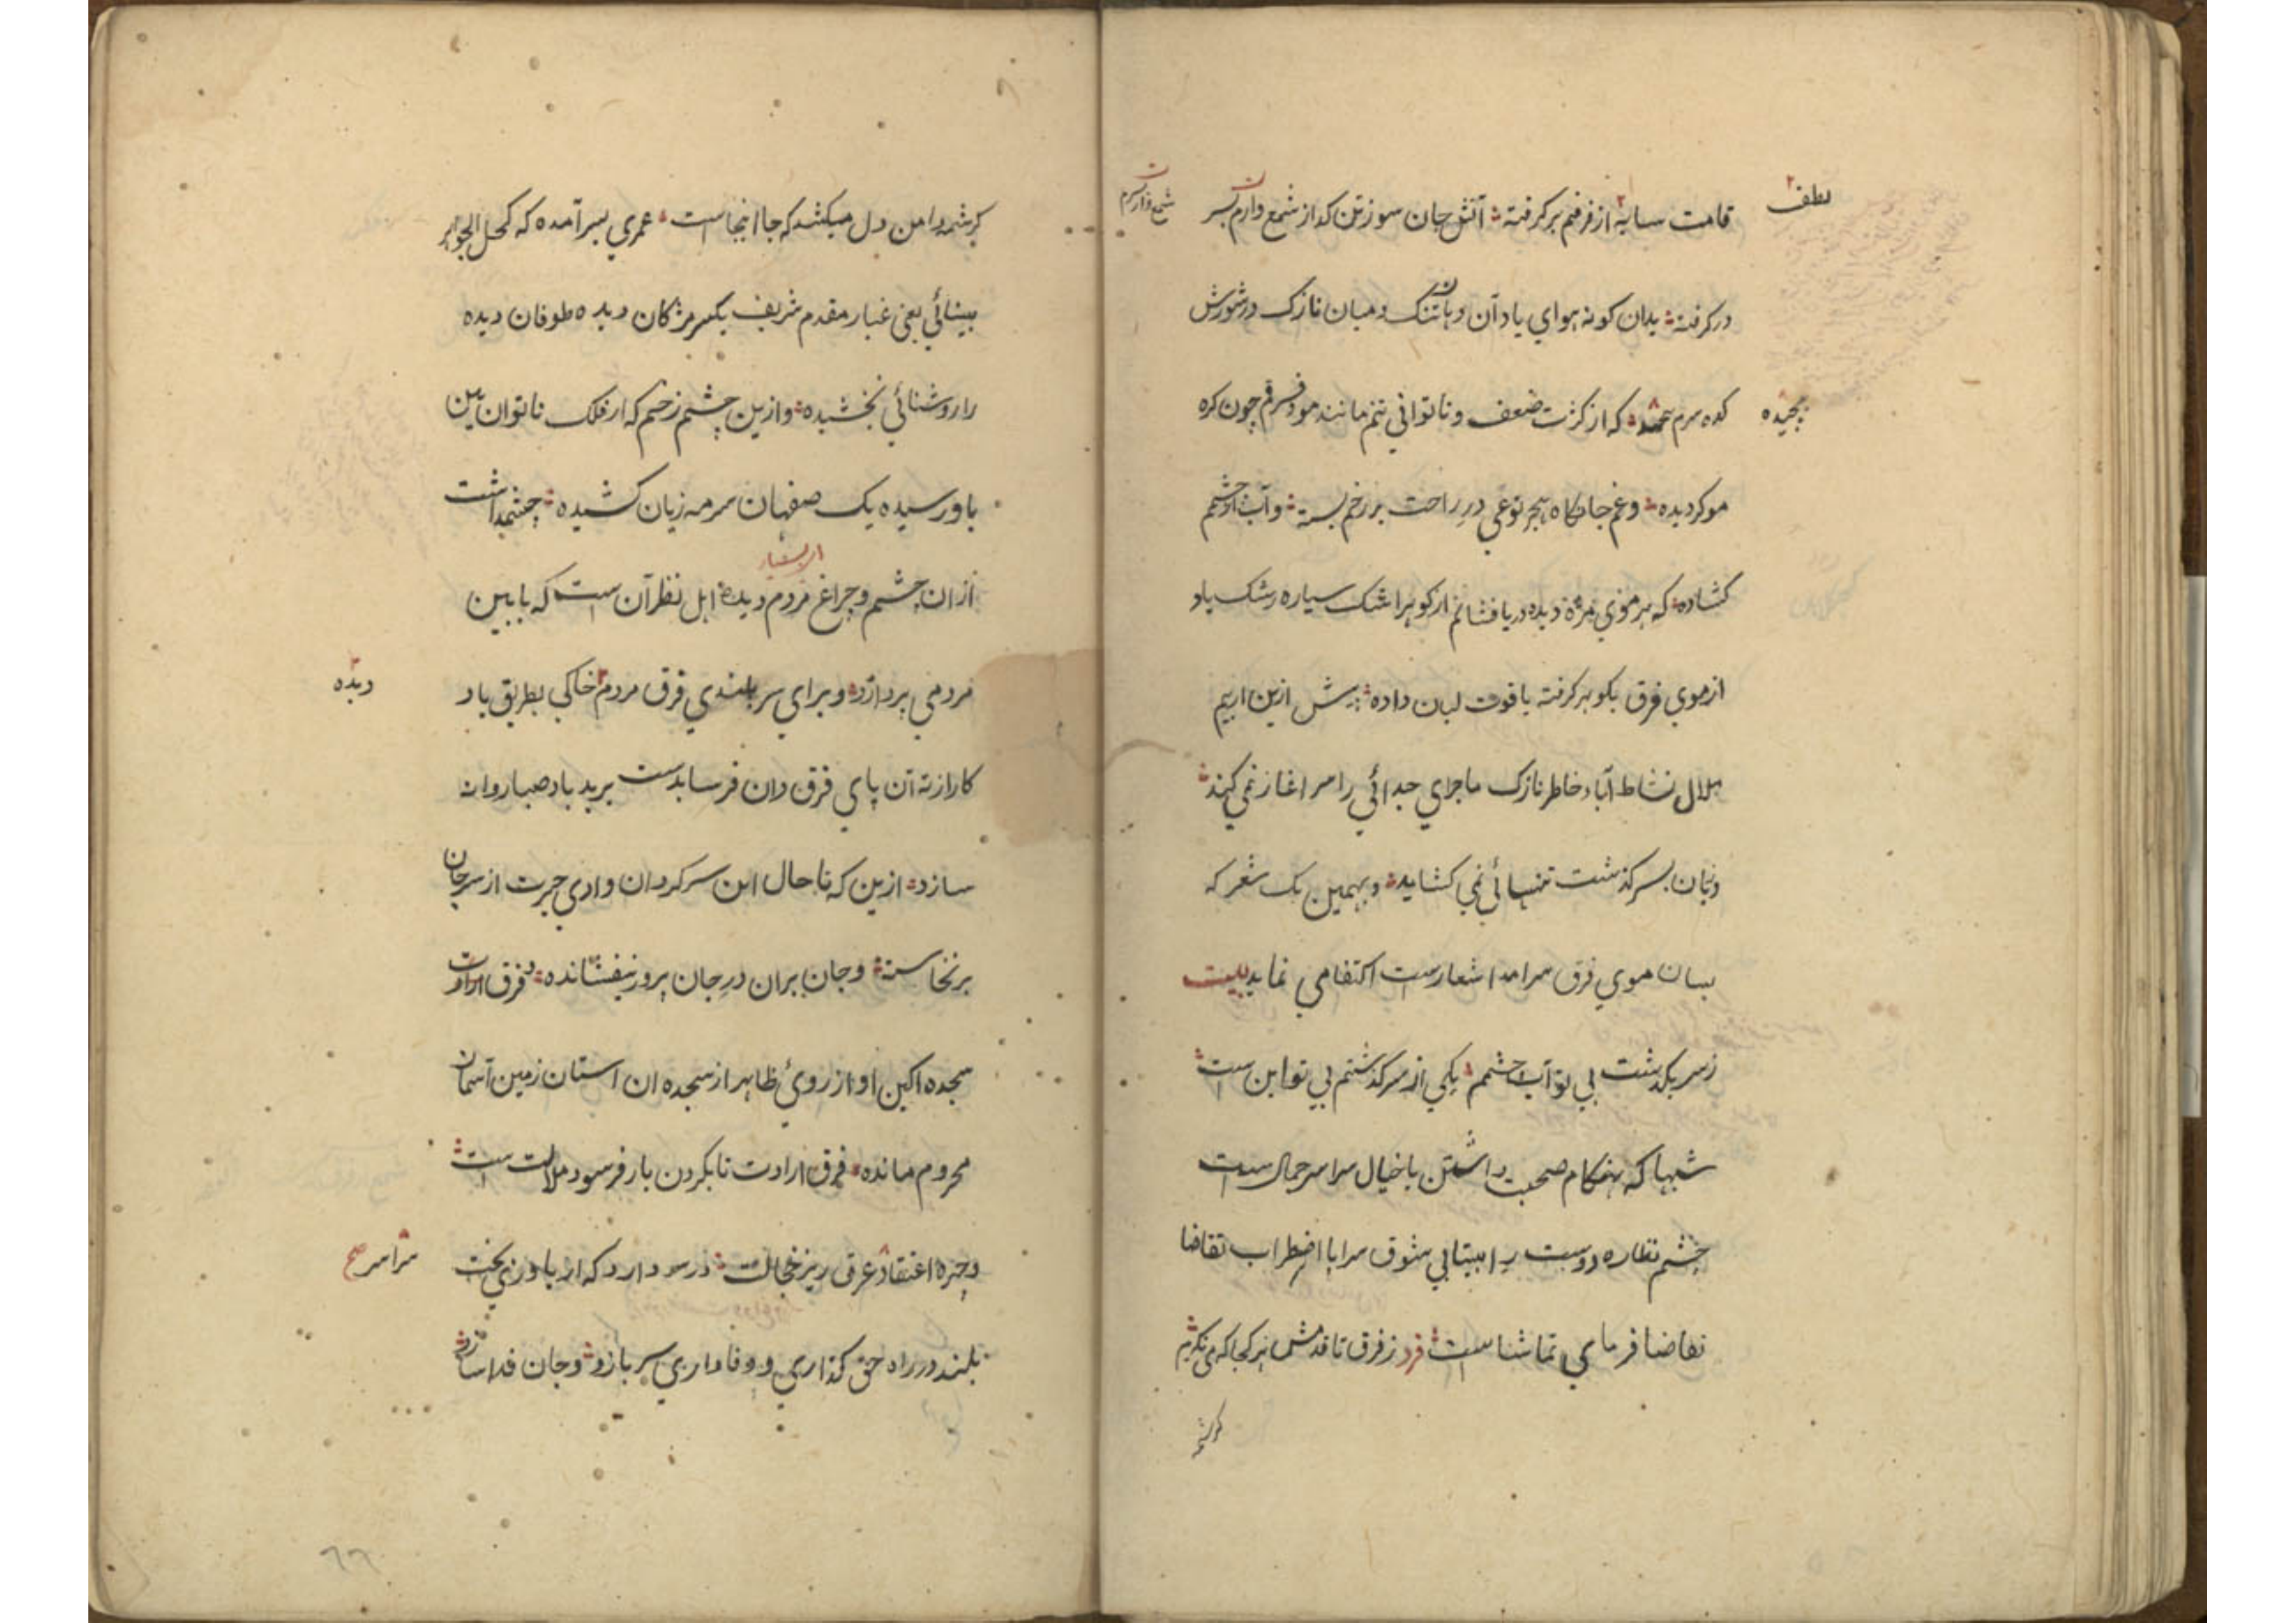 لطف
قامت سایه از فرقم برگرفته آتش جان سوز تن گداز شمع وارم بسر
شمع وارم
در گرفته بدان گونه هوای یاد آن دهان تنگ و میان نازک در شورش
کده سرم که از کثرت ضعف و ناتوانی تنم مانند مو و فرقم چون گره
پیچیده
مو گردیده و غم جانکاه هجر نوعی در راحت بر رخم بسته و آب از چشم
کشاده که هر موی مژهٔ دیده دریا فشانم از گوهر اشک سیاره رشک یاد
از موی فرق بگوهر گرفته یاقوت لبان داده پیش ازین از بیم
ملال نشاط آباد خاطر نازک ماجرای جدائی را سر اغاز نمی کند
و زبان بسر گذشت تنهائی نمی کشاید و بهمین یک شعر که
بسان موی فرق سرامد اشعارست اکتفا می نماید بیت
ز سر بگذشت بی تو آب چشمم یکی از سرگذشتم بی تو این ست
شبها که هنگام صحبت داشتن با خیال سراسر جمال ست
چشم نظاره دوست را بیتابی شوق سراپا اضطراب تقاضا
تقاضا فرمای تماشاست فرد ز فرق تا قدمش هر کجا که می نگرم
کرشمه
کرشمه دامن دل میکشد که جا اینجاست عمری بسر آمده که کحل الجواهر
بینائی یعنی غبار مقدم شریف یکسر مژگان دیده طوفان دیده
را روشنائی نبخشیده و ازین چشم زخم که از فلک ناتوان بین
باو رسیده یک صفهان سرمه زیان کشیده چشمداشت
از ان چشم و چراغ مردم دیدهٔ اهل نظر آن ست که بابین
مردمی پردازد و برای سربلندی فرق مردم خاکی بطریق یاد
دیده
کار از ته آن پای فرقدان فرسا بدست برید باد صبا روانه
سازد ازین که تا حال این سرگردان وادی حیرت از سر جان
برنخاسته و جان بران در جان پرور نیفشانده فرق ارادت
سجده اکین او از روی ظاهر از سجده ان استان زمین آسمان
محروم مانده فرق ارادت تا بگردن بار فرسود ملالت ست
و چهره اعتقاد عرق ریز خجالت در سر دارد که از یاوری بخت
سراسر صح
بلند در راه حق گذاری و وفاداری سر بازد و جان فدا سازد